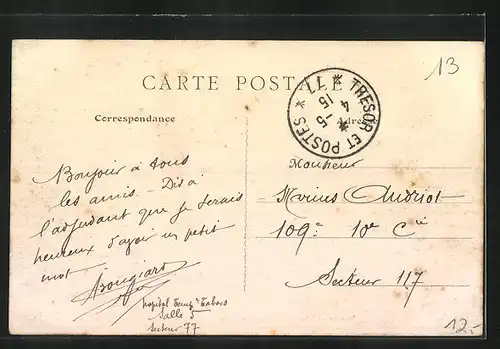 13
CARTE POSTALE
TRESOR ET POSTES * 77 *
5
4
15
Correspondance
Adresse
Bonjour à tous
les amis - Dis à
l'adjudant que je serais
heureux d'avoir un petit
mot -
Hopital
Salle 5
Secteur 77
Monsieur
Marius Andriot
109e 10e Cie
Secteur 117
12.-